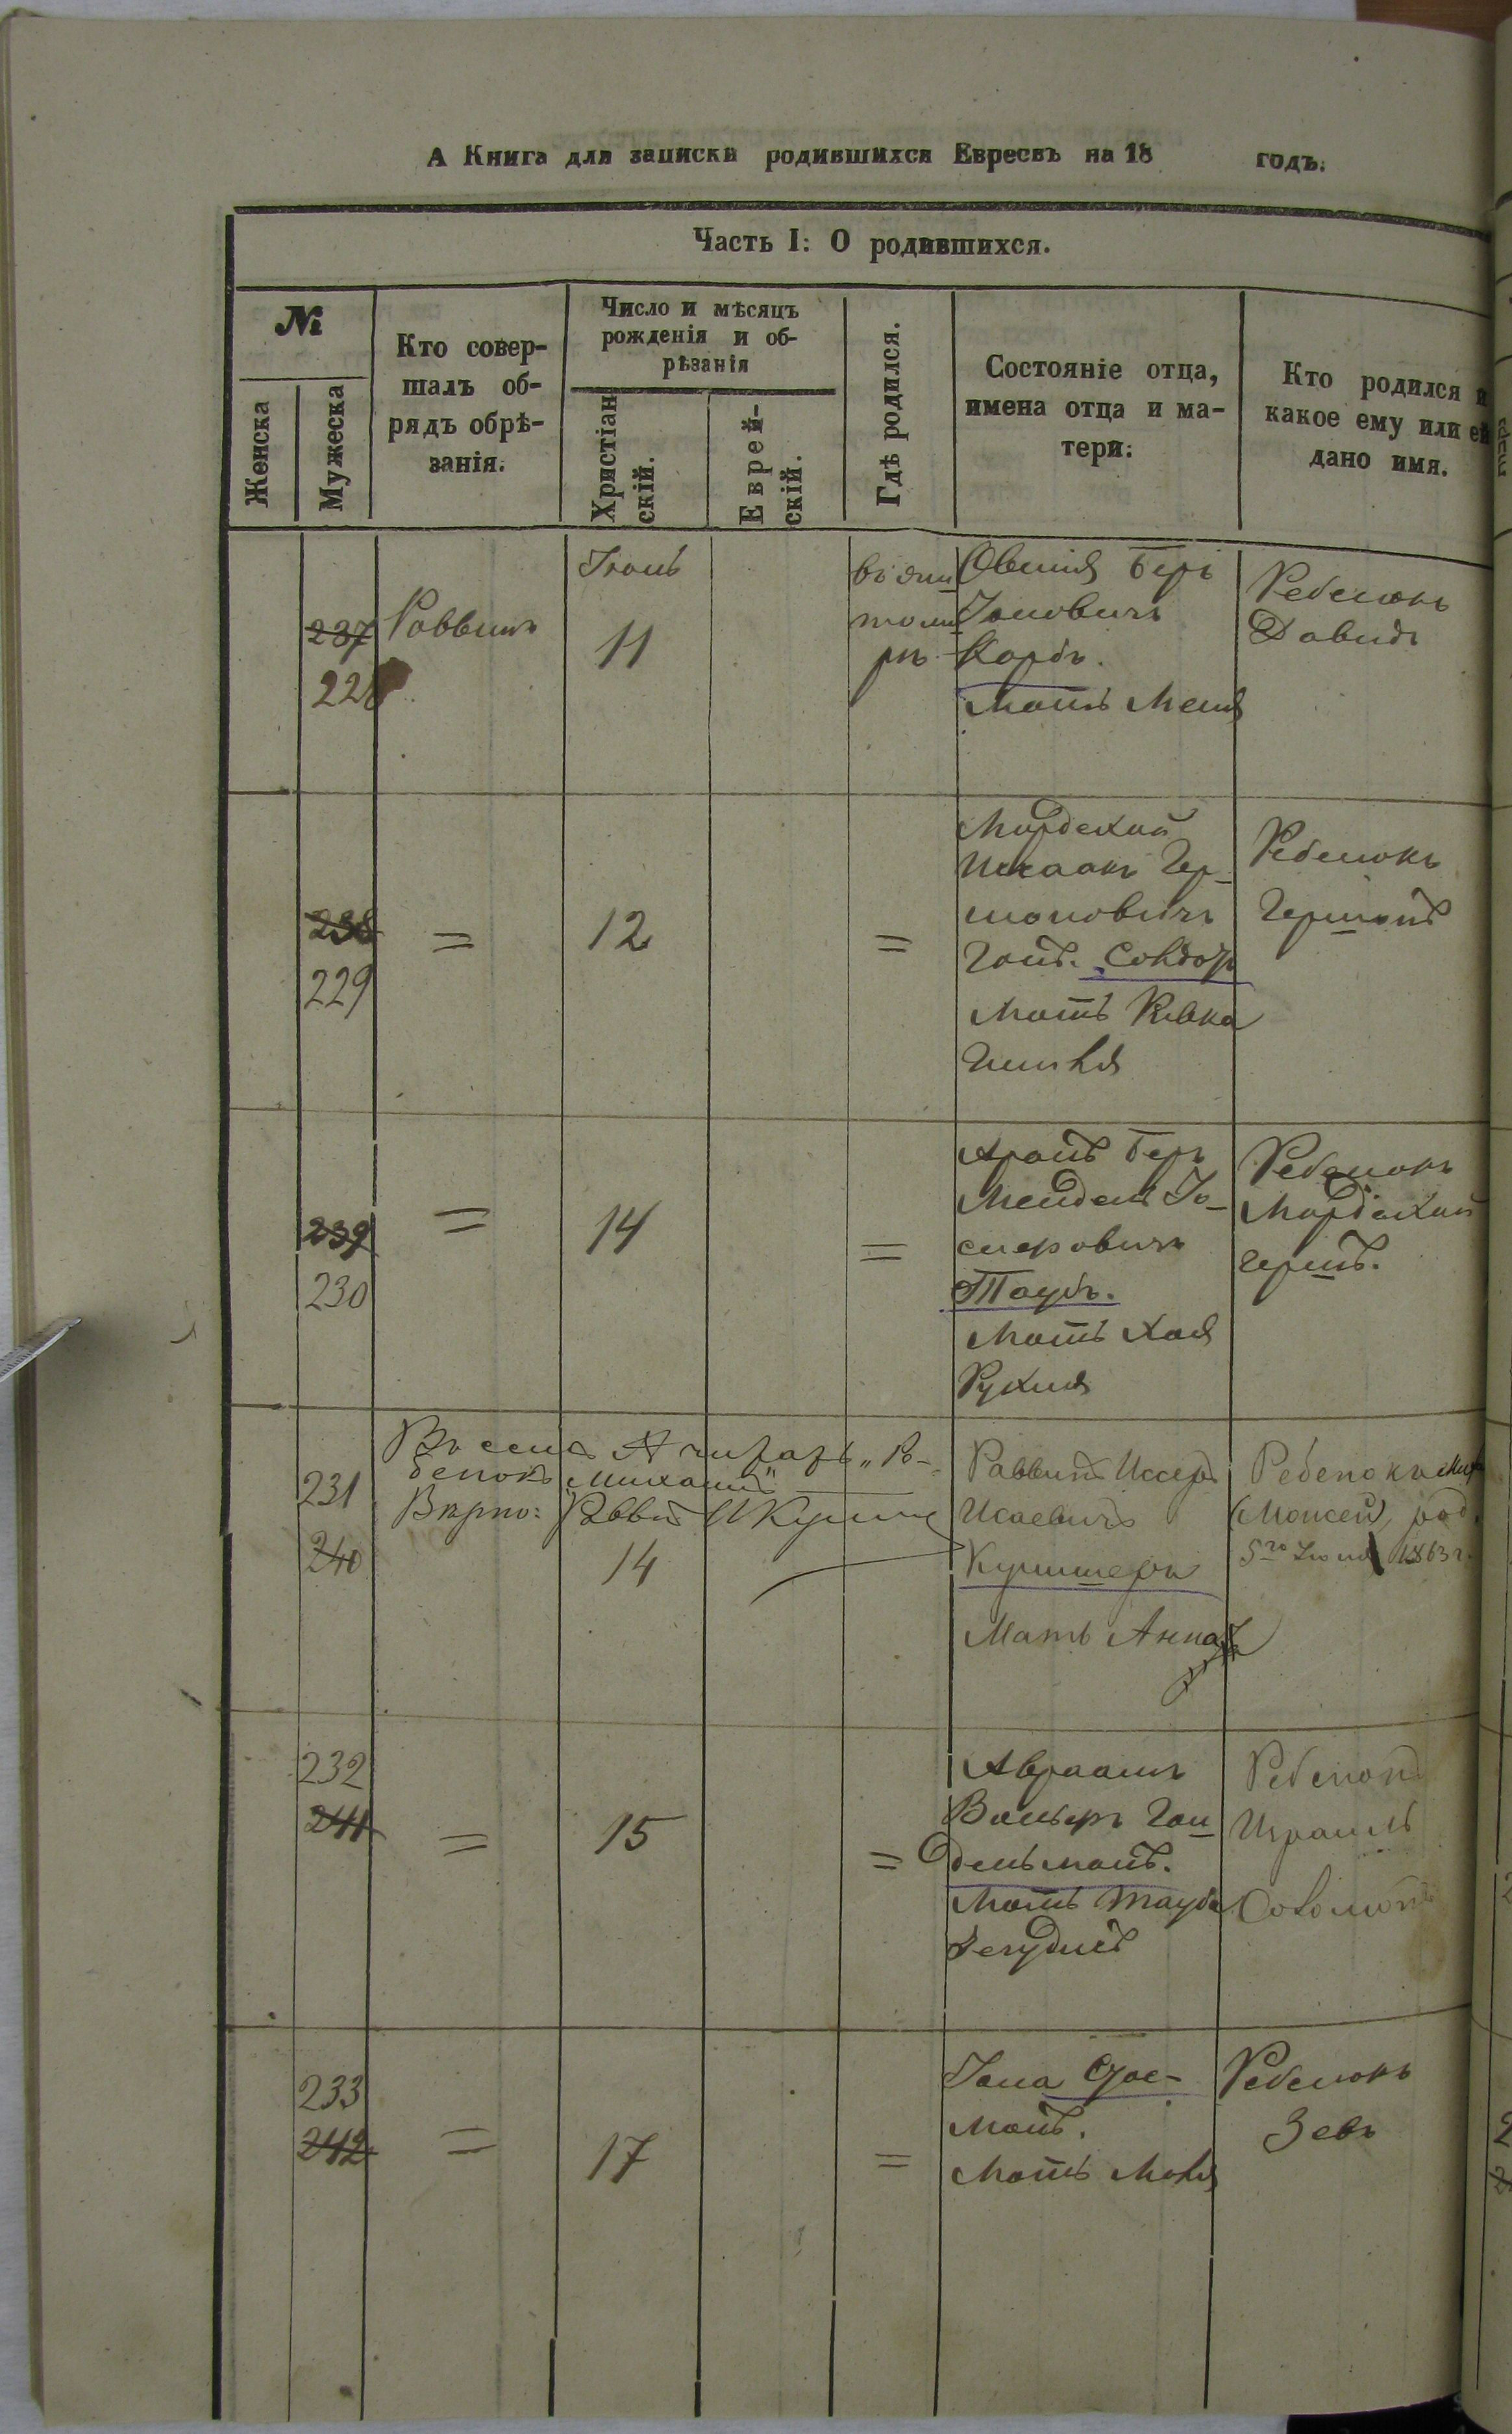 А Книга для записки родившихся Евреевъ на 18 годъ.
Часть I: О родившихся.
№
Женска
Мужеска
Кто совер-
шалъ об-
рядъ обрѣ-
занія.
Число и мѣсяцъ
рожденія и об-
рѣзанія
Христіан
скій.
Еврей-
скій.
Гдѣ родился.
Состояніе отца,
имена отца и ма-
тери.
Кто родился и
какое ему или ей
дано имя.
237
228
Раввинъ
Іюнь
11
въ жи
томи
рѣ
Овшія Беръ
Корбъ.
Мать
Ребенокъ
Давидъ
238
229
=
12
=
Мордехай
Исаакъ Гер-
шоновичъ
Мать Ривка
Ребенокъ
Гершонъ
239
230
=
14
=
Аронъ Беръ
Мендель Іо-
Таубъ.
Мать Хая
Рухля
Ребенокъ
Мордехай
Гершъ.
231
240
бенокъ "Михаилъ"
Вѣрно: Раввинъ
14
Раввинъ Иссеръ
Исаевичъ
Купишеръ
Мать Анна
Ребенокъ
(Моисей) род.
5го Іюня 1863 г.
232
241
=
15
=
Авраамъ
Вольфъ Ган
дельманъ.
Мать Тауба
Ребенокъ
Израиль
Соломонъ
233
242
=
17
=
Іона
манъ.
Мать
Ребенокъ
Зевъ